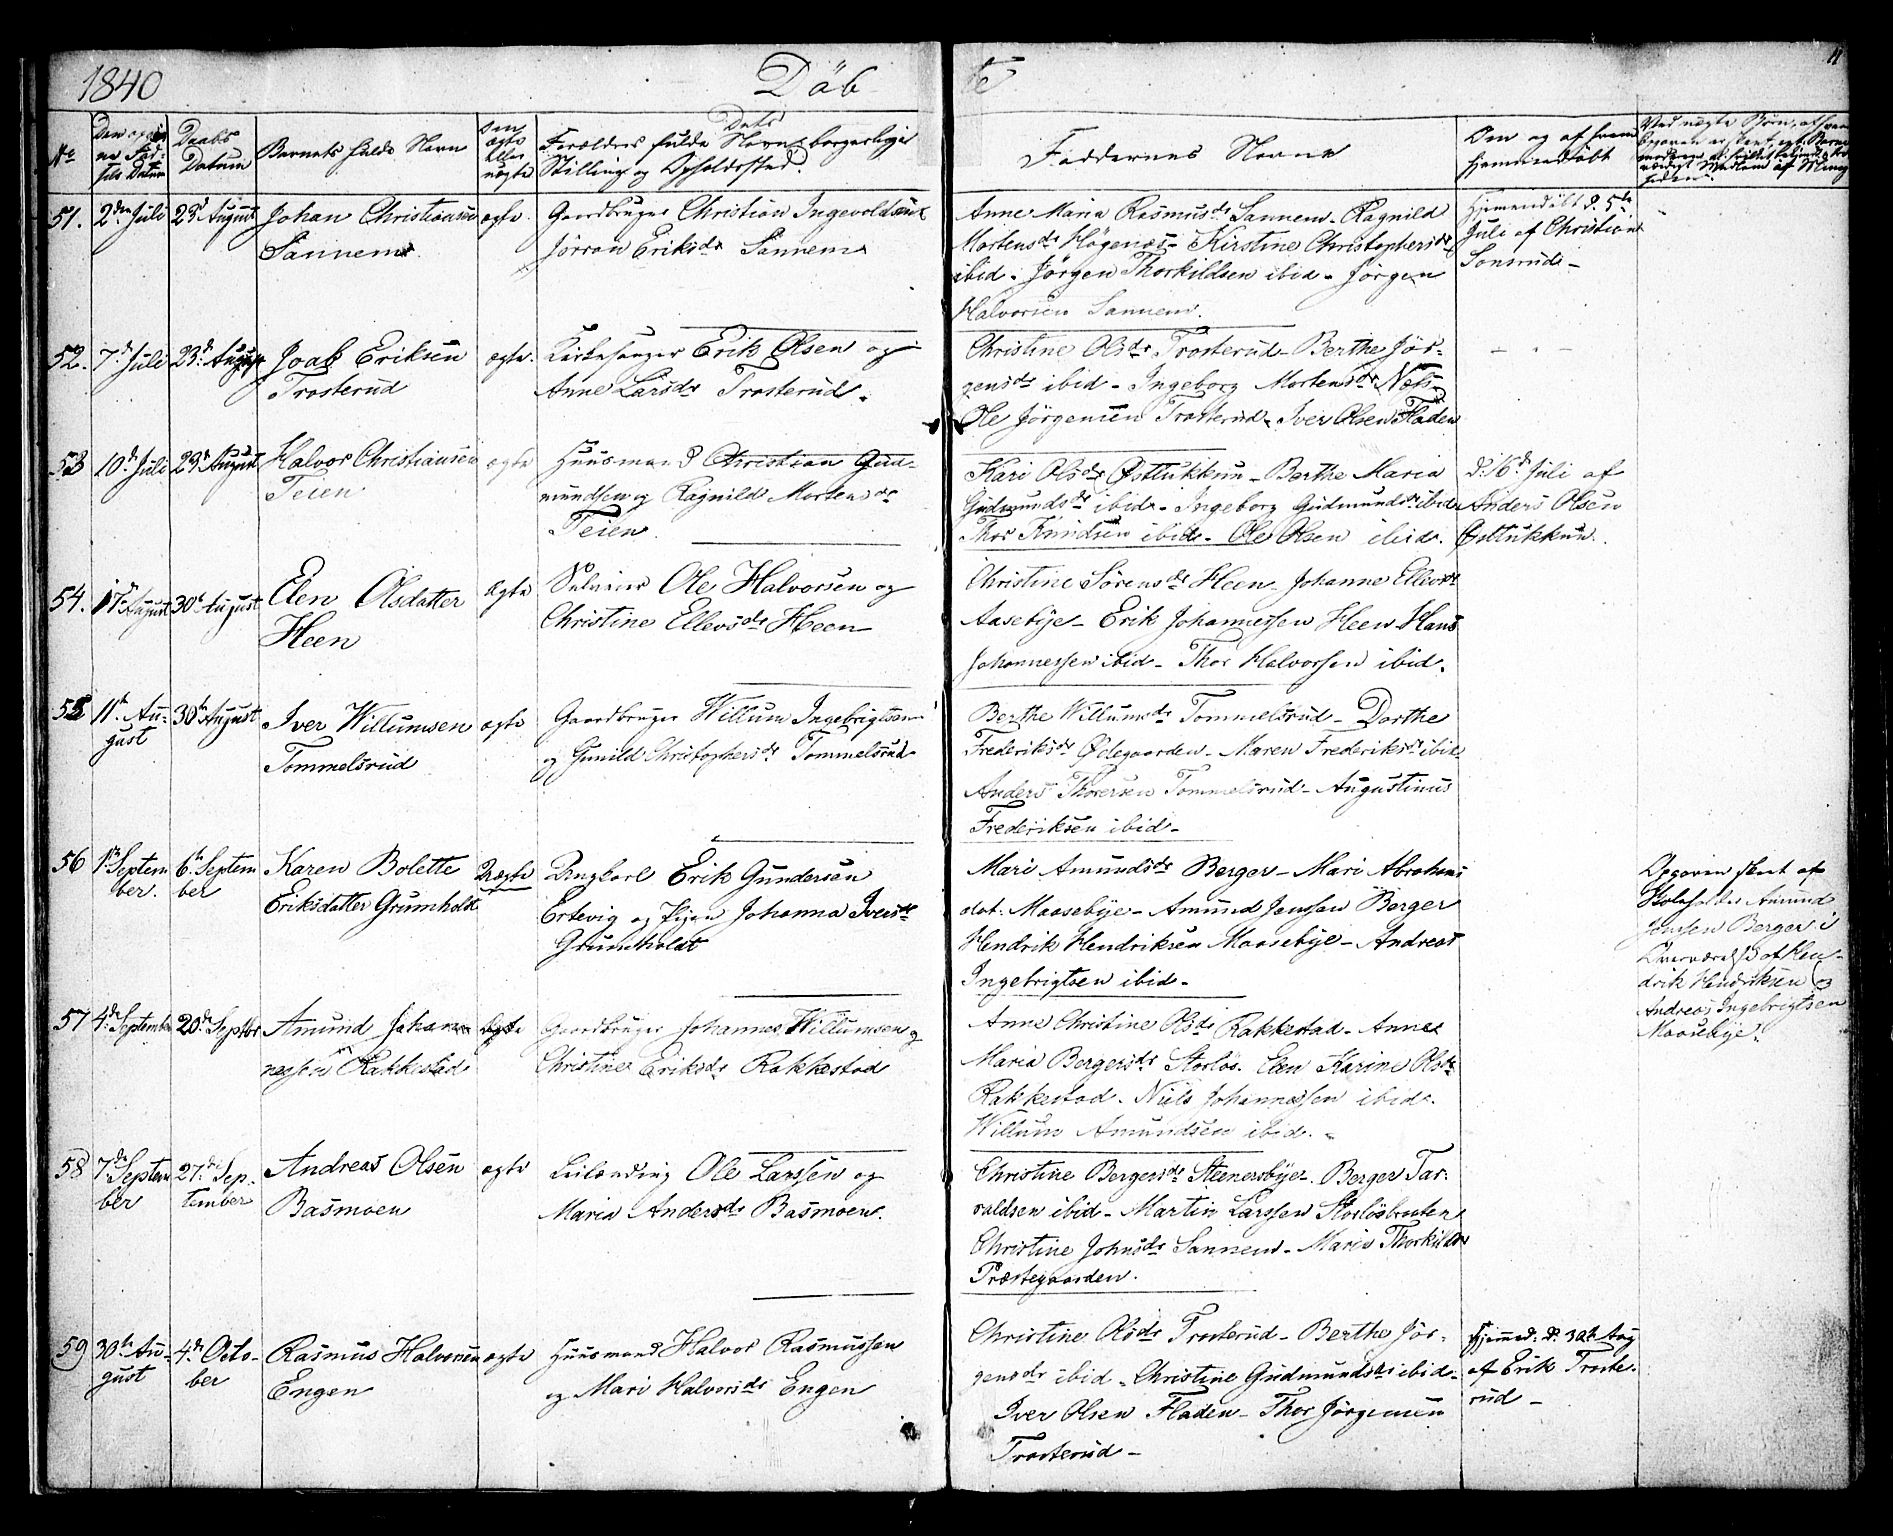 1840
Döb
te
11
No
Daabs
Datum
Barnets fulde Navn
ægte
eller
uægte
Forældres fulde Navne borgerlige
Stilling og Opholdssted.
Faddernes Navne
Om og af hvem
hjemmedøbt
51. 2den Juli 23d August Johan Christiansen ægte. Gaardbruger Christian Ingevoldsen &
Sannem
Jörran Eriksdr Sannem
Anne Maria Rasmusdr Sannem - Ragnild
Mortensdr Høgenæs - Kirstine Christophersdr
ibid - Jørgen Thorkildsen ibid - Jørgen
Halvorsen Sannem.
Hjemmedøbt d. 5te
Juli af Christian
Sonsrud -
52. 7d Juli 23d August Joab Eriksen ægte. Kirkesanger Erik Olsen og
Trosterud
Anne Larsdr Trosterud.
Christine Olsdr Trosterud - Berthe Jör-
gensdr ibid - Ingeborg Mortensdr Næs -
Ole Jörgensen Trosterud - Iver Olsen Fladen
53 10d Juli 23d August Halvor Christiansen ægte Huusmand Christian Gud-
Teien
mundsen og Ragnild Mortensdr
Teien.
Kari Olsdr Østtukkun - Berthe Maria
Gudmundsdr ibid - Ingeborg Gudmundsdr ibid
Thor Knudsen ibid - Ole Olsen ibid.
d. 16d Juli af
Anders Olsen
Østtukkun.
54. August 30te August Elen Olsdatter ægte Ole Halvorsen og
Heen
Christine Ellevsdr Heen
Christine Sörensdr Heen - Johanne Ellevsdr
Aasebye - Erik Johannessen Heen - Hans
Johannessen ibid - Thor Halvorsen ibid.
55 11te Au- 30te August Iver Willumsen ægte Gaardbruger Willum Ingebrigtsen
gust
Tommelsrud
og Gunild Christophersdr Tommelsrud
Berthe Willumsdr Tommelsrud - Dorthe
Frederiksdr Ødegaarden - Maren Frederiksdr ibid
Anders Thoresen Tommelsrud - Augustinus
Frederiksen ibid -
56 1ste Septem 6te Septem Karen Bolette Uægte Ungkarl Erik Gundersen
ber. ber
Eriksdatter Grumholdt
Ertevig og Pigen Johanna Iversdr
Grumholdt
Mari Amundsdr Berger - Mari Abrahams
dat: Maasebye - Amund Jensen Berger
Hendrik Hendriksen Maasebye - Andreas
Ingebrigtsen ibid -
Opgaven skeet af
Amund
Jensen Berger i
Overværelse af Hen-
drik Hendriksen og
Andreas Ingebrigtsen
Maasebye.
57 4de September 20de Septbr Amund Johan- Ægte Gaardbruger Johannes Willumsen og
nessen Rakkestad
Christine Eriksdr Rakkestad
Anne Christine Olsdr Rakkestad - Anne
Maria Bergersdr Storløs - Elen Karine Olsdr
Rakkestad - Niels Johannessen ibid.
Willum Amundsen ibid. -
58 7de Septem 27de Sep- Andreas Olsen ægte Leilænding Ole Larssen og
ber tember
Basmoen
Maria Andersdr Basmoen.
Christine Bergersdr Steenersbye - Berger Tar-
valdsen ibid - Martin Larssen Storløsbraaten
Christine Johnsdr Sannem - Maria Thorkildsdr
Præstegaarden.
59 30te Au- 4de Octo- Rasmus Halvorsen ægte Huusmand Halvor Rasmussen
gust ber
Engen
og Mari Halvorsdr Engen
Christine Olsdr Trosterud - Berthe Jör-
gensdr ibid - Christine Gudmundsdr ibid -
Iver Olsen Fladen - Thor Jörgensen
Trosterud -
Hjemmed: d. 30te Aug
af Erik Troste-
rud -